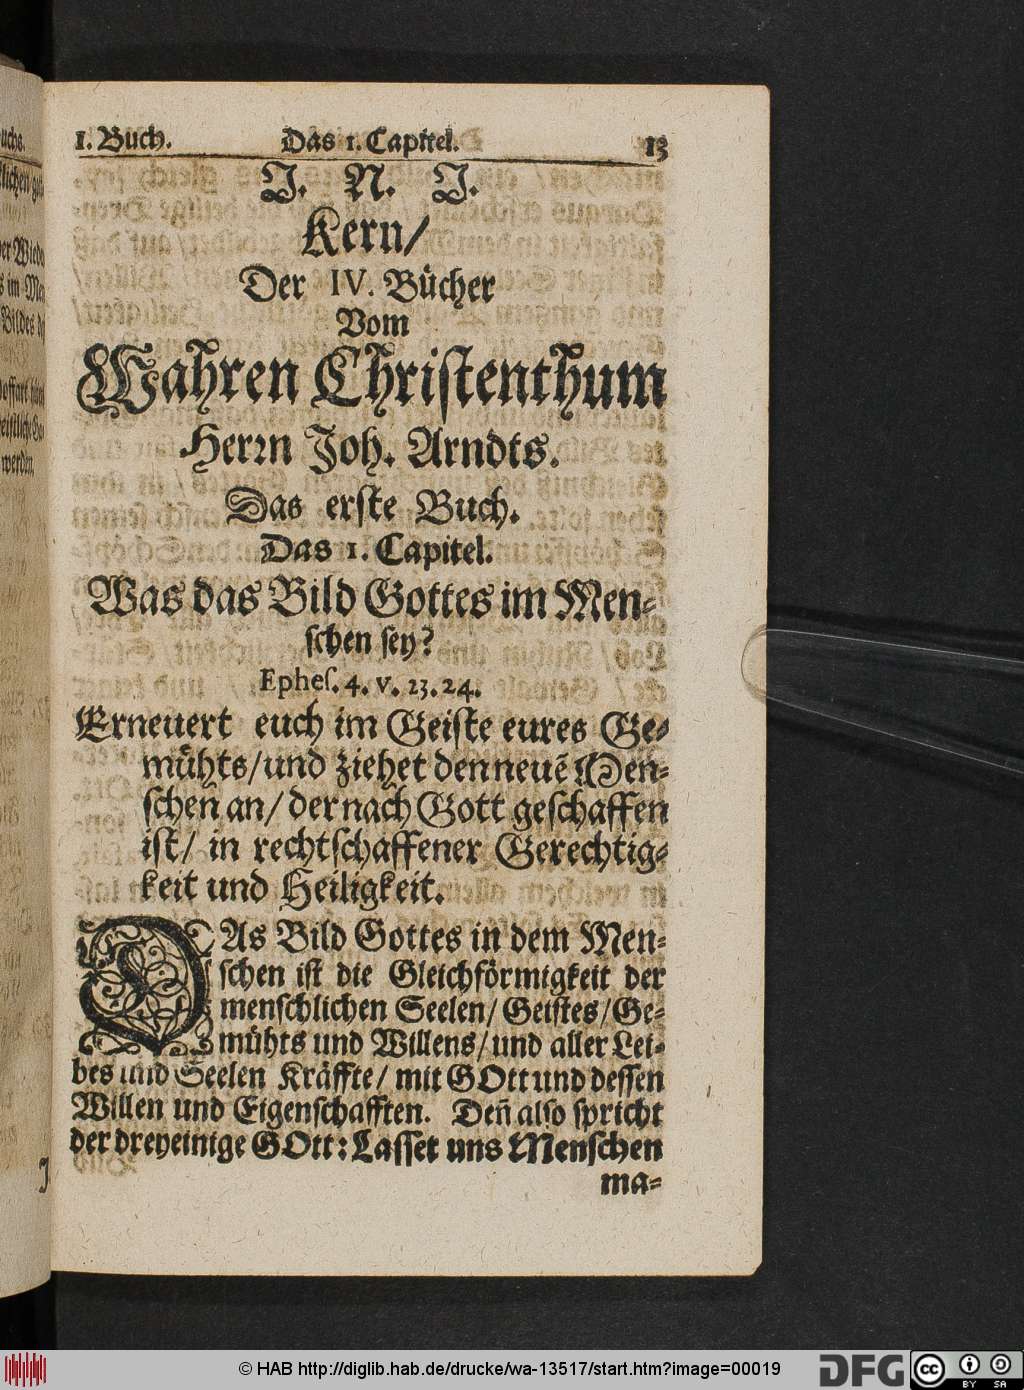 1. Buch. Das 1. Capitel. 13
J. N. J.
Kern/
Der IV. Bücher
Vom
Wahren Christenthum
Herrn Joh. Arndts.
Das erste Buch.
Das 1. Capitel.
Was das Bild Gottes im Men-
schen sey?
Ephes. 4. v. 23. 24.
Erneuert euch im Geiste eures Ge-
mühts/und ziehet den neuẽ Men-
schen an/ der nach Gott geschaffen
ist/ in rechtschaffener Gerechtig-
keit und Heiligkeit.
DAs Bild Gottes in dem Men-
schen ist die Gleichförmigkeit der
menschlichen Seelen/ Geistes/ Ge-
mühts und Willens/ und aller Lei-
bes und Seelen Kräffte/ mit GOtt und dessen
Willen und Eigenschafften. Deñ also spricht
der dreyeinige GOtt: Lasset uns Menschen
ma-
© HAB http://diglib.hab.de/drucke/wa-13517/start.htm?image=00019
DFG
cc
BY SA